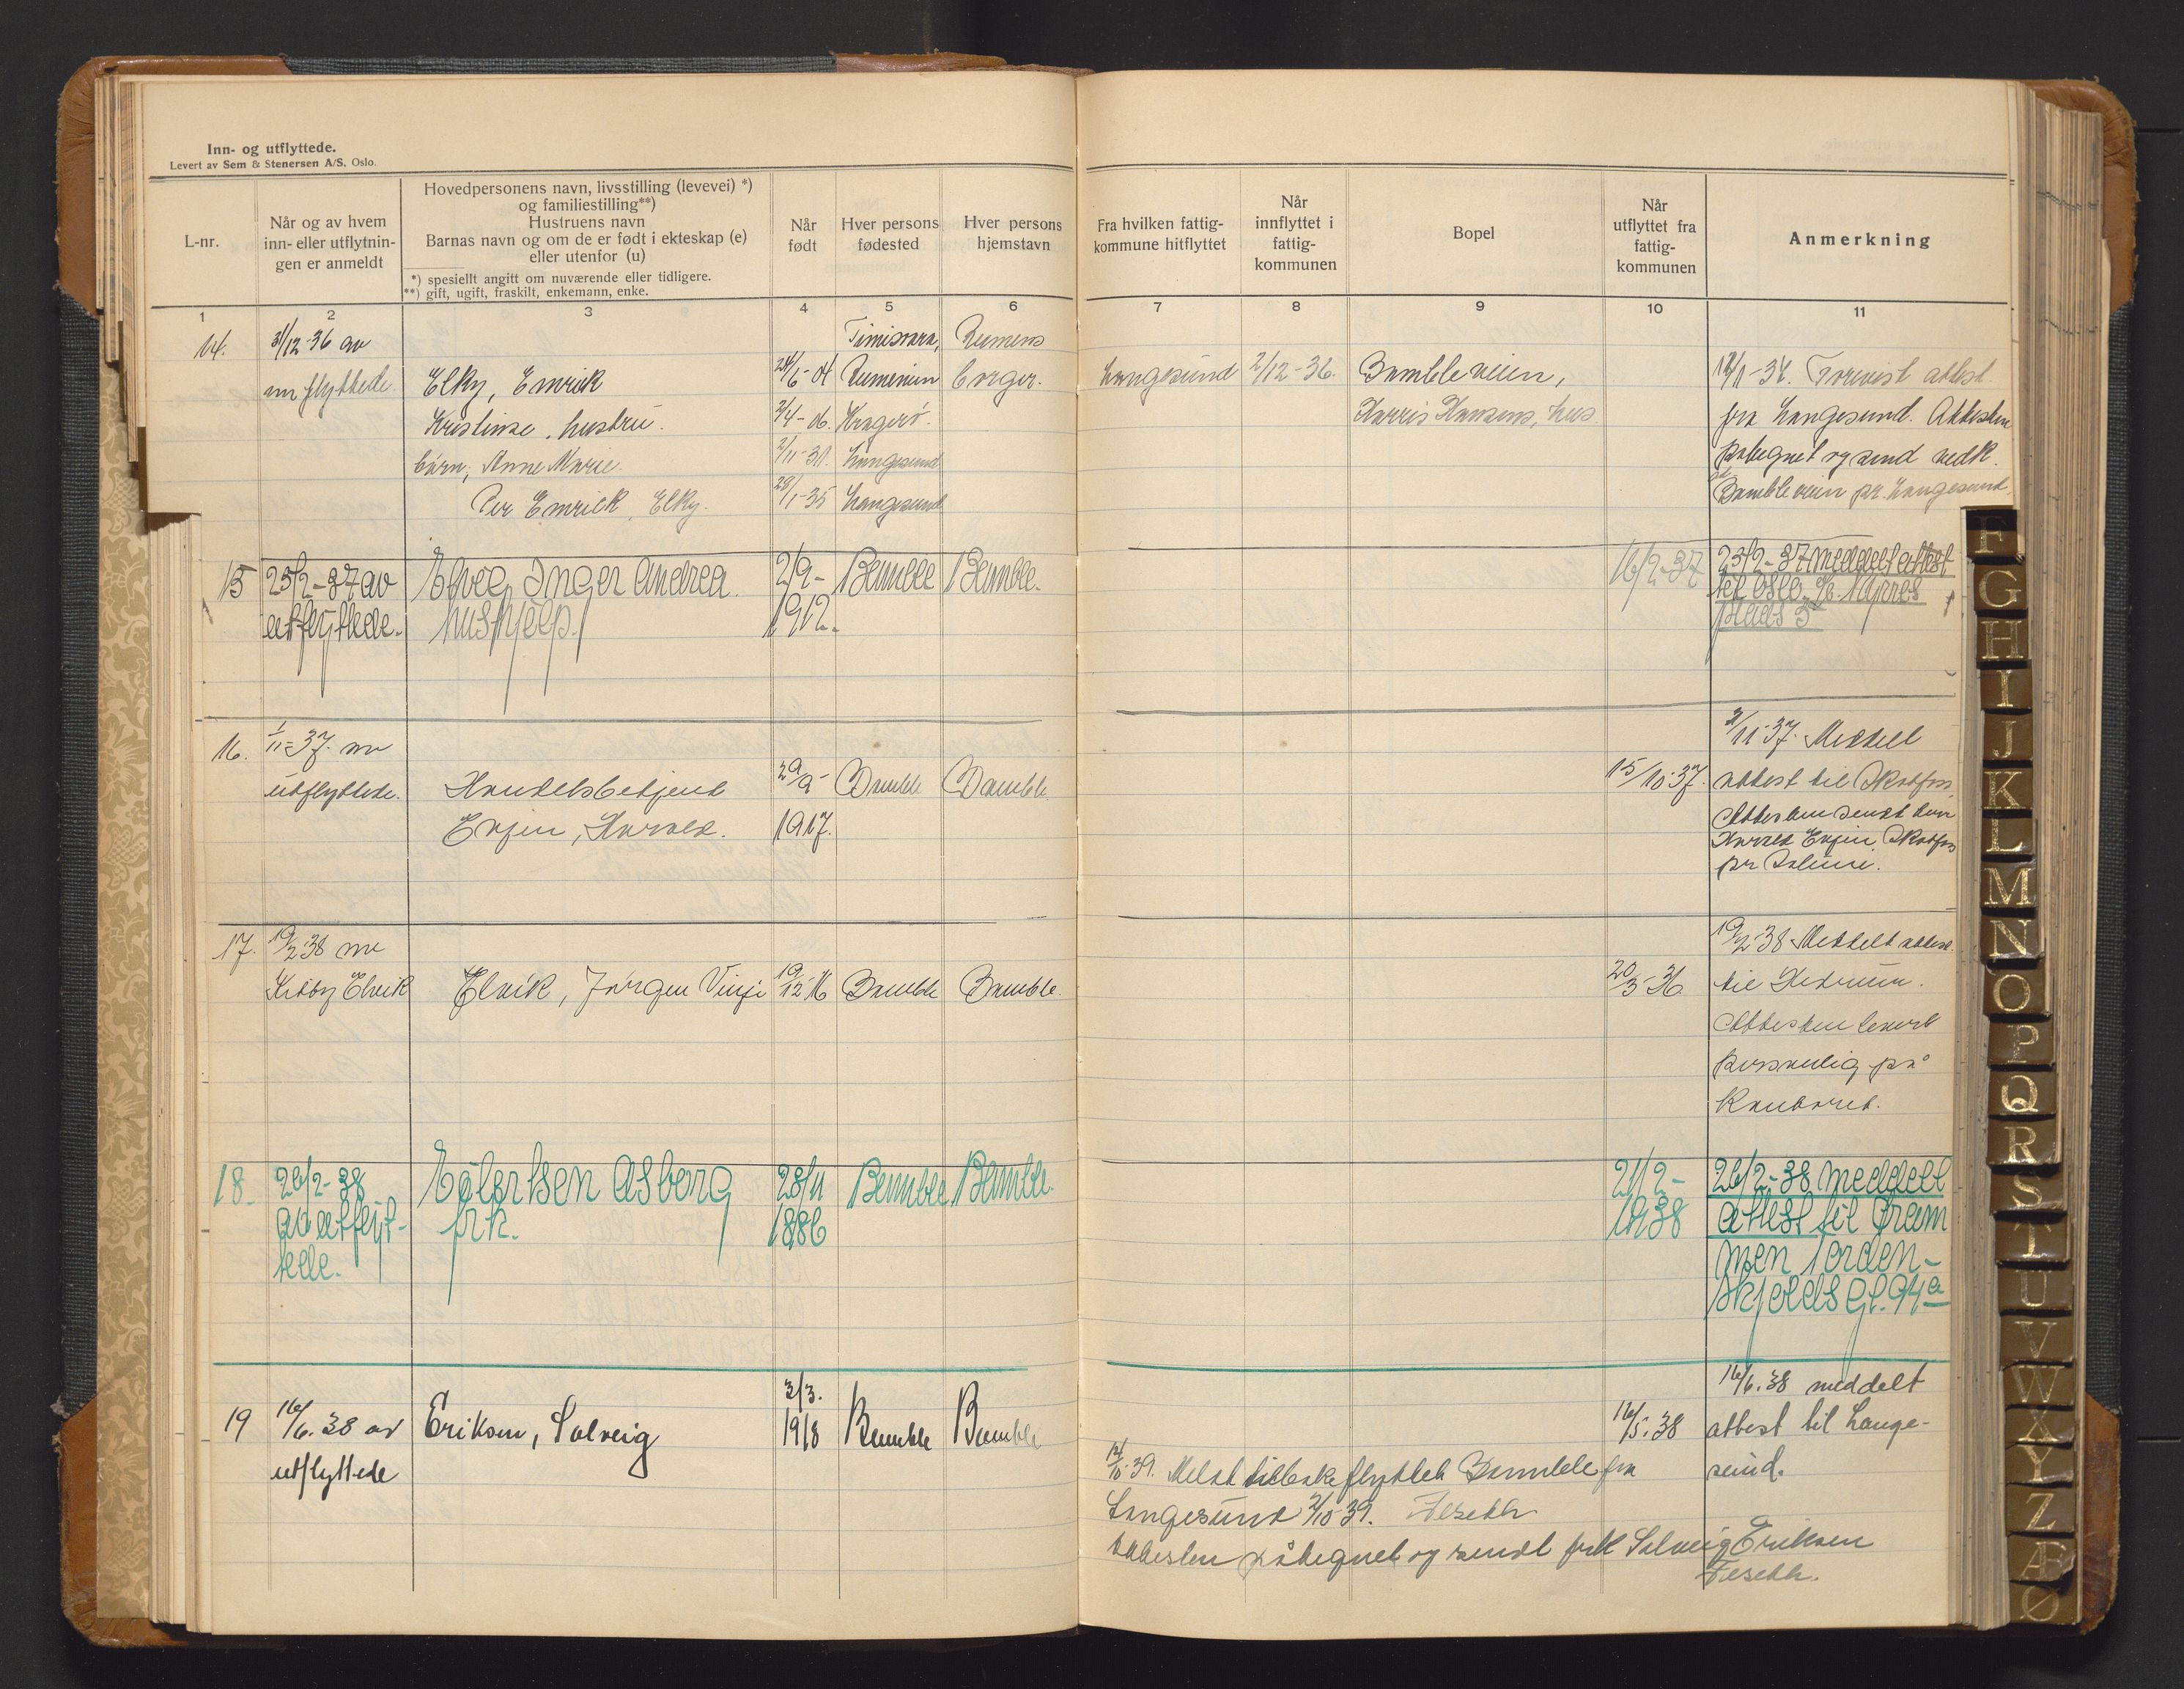 Inn- og utflyttede.
Levert av Sem & Stenersen A/S, Oslo.
L-nr.
Når og av hvem
inn- eller utflytnin-
gen er anmeldt
Hovedpersonens navn, livsstilling (levevei) *)
og familiestilling**)
Hustruens navn
Barnas navn og om de er født i ekteskap (e)
eller utenfor (u)
*) spesiellt angitt om nuværende eller tidligere.
**) gift, ugift, fraskilt, enkemann, enke.
Når
født
Hver persons
fødested
Hver persons
hjemstavn
Fra hvilken fattig-
kommune hitflyttet
Når
innflyttet i
fattig-
kommunen
Bopel
Når
utflyttet fra
fattig-
kommunen
Anmerkning
1 2 3 4 5 6 7 8 9 10 11
14. 31/12-36 av Timisvara, Rumens
innflyttede. Elky, Emrick 24/6-04 Rumenien borger. Langesund 2/12-36. Bambleveien, 12/1-37. Forevist attest
Kristinse, hustru. 2/4-06. Kragerø. Harris Hansens, hus. fra Langesund. Attesten
barn; Anne Marie. 2/11-31. Langesund påtegnet og send vedk.
Per Emrick Elky. 28/1-35 Langesund Bambleveien pr. Langesund.
15 25/2-37 av Elveg Inger Andrea. 2/9- Bamble Bamble. 16/2-37 25/2-37 meddelt attest
utflyttede. hushjelp. 1912. til Oslo,
plads 5
16. 1/11-37. av 2/11-37. Meddelt
utflyttede. Handelsbetjent 29/9- Bamble Bamble 15/10-37. attest til Skotfoss,
Evjen, Harald. 1917. Attesten sendt herr
Harald Evjen, Skotfoss
pr Solum.
17. 19/2-38 av 19/2-38 Meddelt attest
Kitty Elvik Elvik, Jørgen Vinje 19/12-16 Bamble Bamble. 20/3-36 til Hedrum.
Attesten levert
personlig på
kontoret.
18. 26/2-38 Eilertsen Asborg 28/11 Bamble Bamble. 21/2- 26/2-38 meddelt
av utflyt- frk. 1886 1938 attest til Dram
tede. men Torden-
skjolds gt. 94a
3/3. 16/6.38 meddelt
19 16/6.38 av Eriksen, Solveig 1918 Bamble Bamble 16/5.38 attest til Lange-
utflyttede sund.
12/10-39. Meldt tilbakeflyttet Bamble fra
Langesund 2/10-39.
Attesten påtegnet og sendt frk Solveig Eriksen